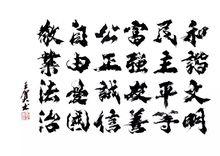 和諧文明
民主平等
富強友善
公正誠信
自由愛國
敬業法治